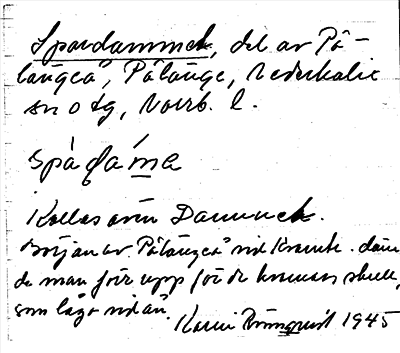 Spardammen, del av På-
långeå, Pålänge, Nederkalix
sn o tg, Norrb. l.
spàɖáma
Kallas även Dammen.
Början av Pålångeå vid Kvarnh. däm
de man förr upp för de kvarnars skull,
som låg vid ån.
Karin Rönnqvist 1945